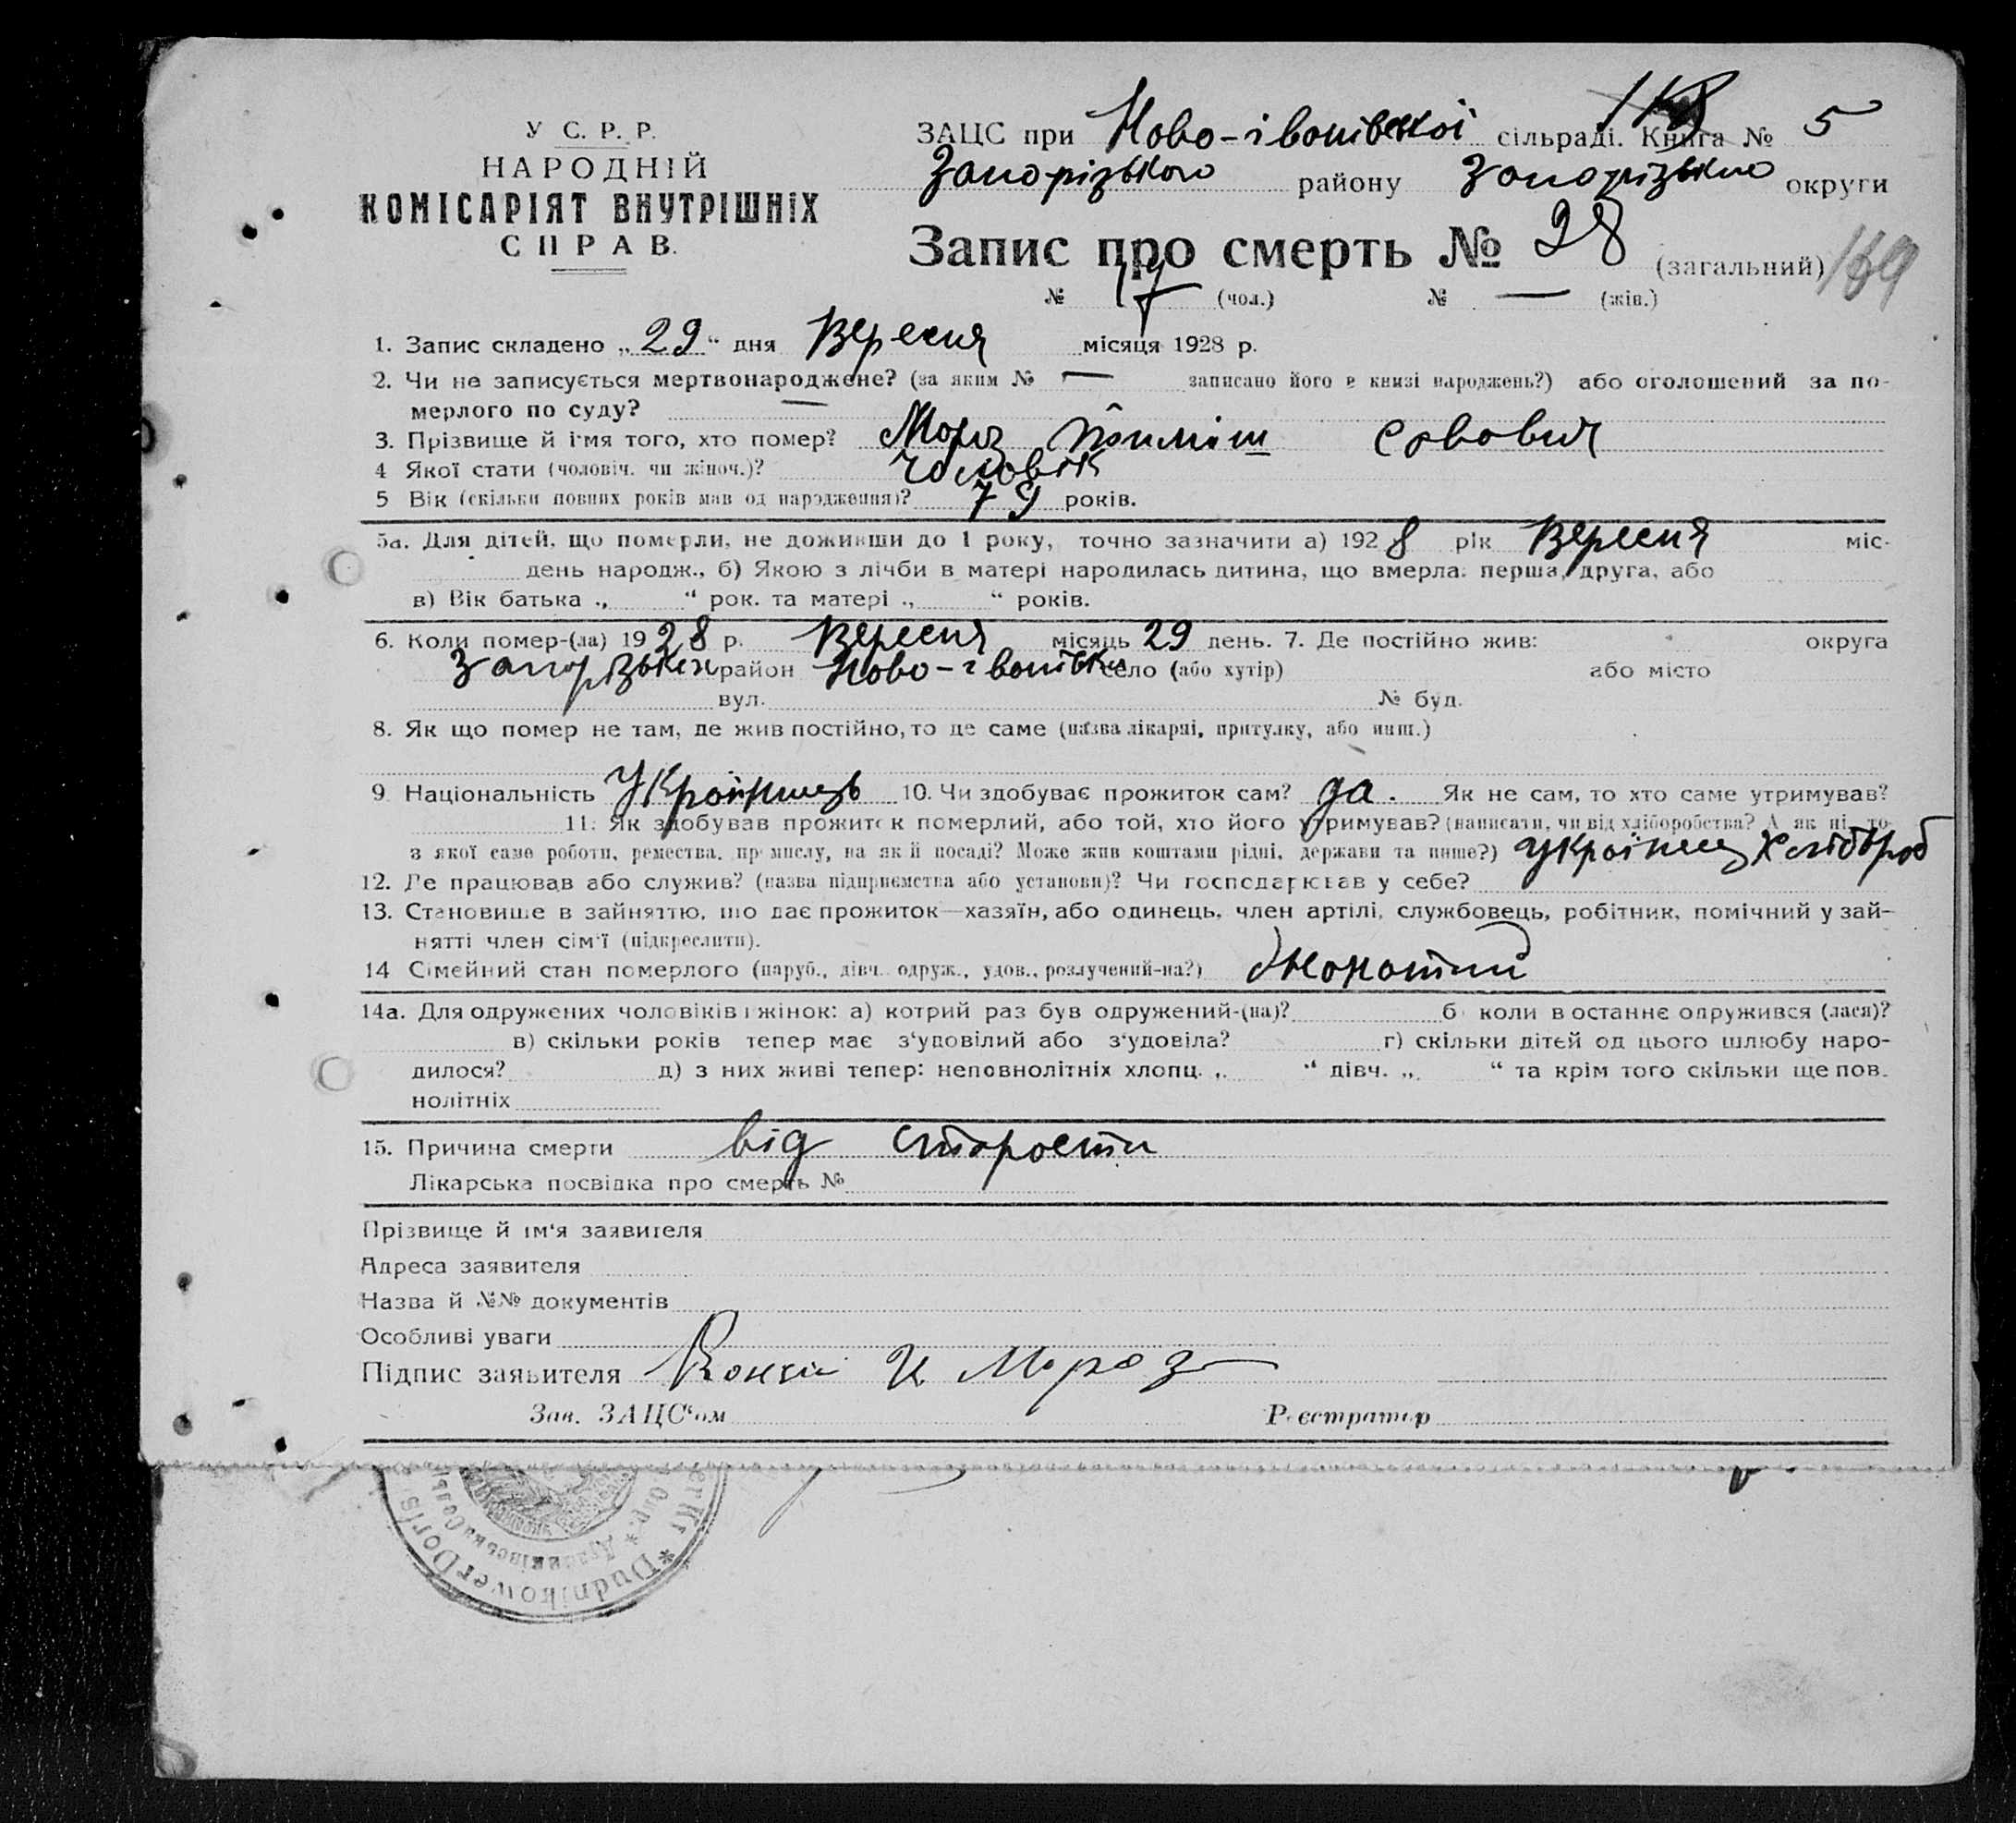 У С. Р. Р.
НАРОДНІЙ
КОМІСАРІЯТ ВНУТРІШНІХ
СПРАВ.
ЗАЦС при Ново-івонівської сільраді. Книга № 5
Запорізького району Запорізького округи
Запис про смерть № 28 (загальний) 169
№ 17 (чол.) № — (жін.)
1. Запис складено „29“ дня Вересня місяця 1928 р.
2. Чи не записується мертвонароджене? (за яким № — записано його в книзі народжень?) або оголошений за по-
мерлого по суду? —
3. Прізвище й імя того, хто помер? Мороз
4 Якої стати (чоловіч. чи жіноч.)? чоловік
5 Вік (скільки повних років мав од народження)? 79 років.
5а. Для дітей, що померли, не доживши до 1 року, точно зазначити а) 1928 рік Вересня міс-
день народж., б) Якою з лічби в матері народилась дитина, що вмерла: перша, друга, або
в) Вік батька „ “ рок. та матері „ “ років.
6. Коли помер-(ла) 1928 р. Вересня місяць 29 день. 7. Де постійно жив: округа
район Ново-івонівка село (або хутір) або місто
вул. № буд.
8. Як що помер не там, де жив постійно, то де саме (назва лікарні, притулку, або инш.)
9 Національність Украінець 10. Чи здобуває прожиток сам? да. Як не сам, то хто саме утримував?
11. Як здобував прожиток померлий, або той, хто його утримував? (написати, чи від хліборобства? А як ні, то
з якої саме роботи, ремества, промислу, на якій посаді? Може жив коштами рідні, держави та инше?) Украінец Хлібороб
12. Де працював або служив? (назва підприємства або установи)? Чи господарював у себе?
13. Становище в зайняттю, що дає прожиток—хазяїн, або одинець, член артілі, службовець, робітник, помічний у зай-
нятті член сім'ї (підкреслити).
14 Сімейний стан померлого (паруб., дівч. одруж., удов., розлучений-на?) Жонатий
14а. Для одружених чоловіків і жінок: а) котрий раз був одружений-(на)? б коли в останнє одружився (лася)?
в) скільки років тепер має з'удовілий або з'удовіла? г) скільки дітей од цього шлюбу наро-
дилося? д) з них живі тепер: неповнолітніх хлопц. „ “ дівч. „ “ та крім того скільки ще пов.
нолітніх
15. Причина смерти від старости
Лікарська посвідка про смерть №
Прізвище й ім'я заявителя
Адреса заявителя
Назва й №№ документів
Особливі уваги
Підпис заявителя И Мороз
Зав. ЗАЦС'ом Реєстратор
*Dudnikower Dorfs